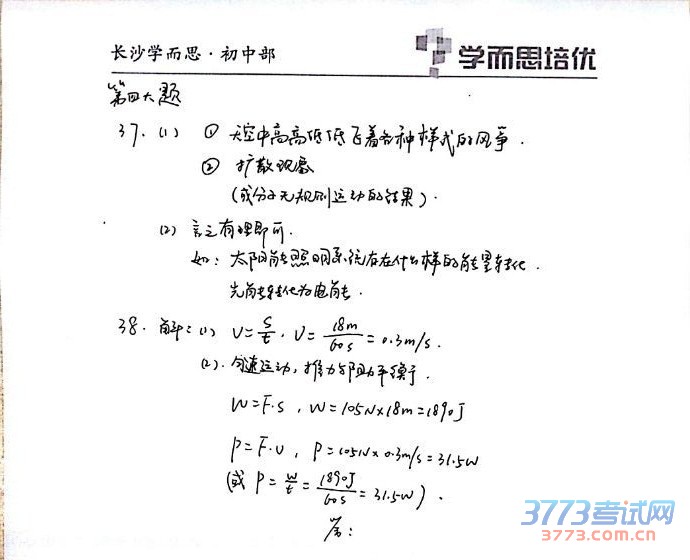 长沙学而思·初中部
学而思培优
第四大题
37. (1) ① 天空中高高低低飞着各种样式的风筝.
② 扩散现象
(或分子无规则运动的结果).
(2) 言之有理即可.
如: 太阳能照明系统存在什么样的能量转化.
光能转化为电能.
38. 解: (1) V=S/t, V=18m/60s=0.3m/s.
(2). 匀速运动, 推力与阻力平衡.
W=F·S, W=105N×18m=1890J
P=F·υ, P=105N×0.3m/s=31.5W
(或 P=W/t=1890J/60s=31.5W).
答:
3773考试网
www.3773.com.cn